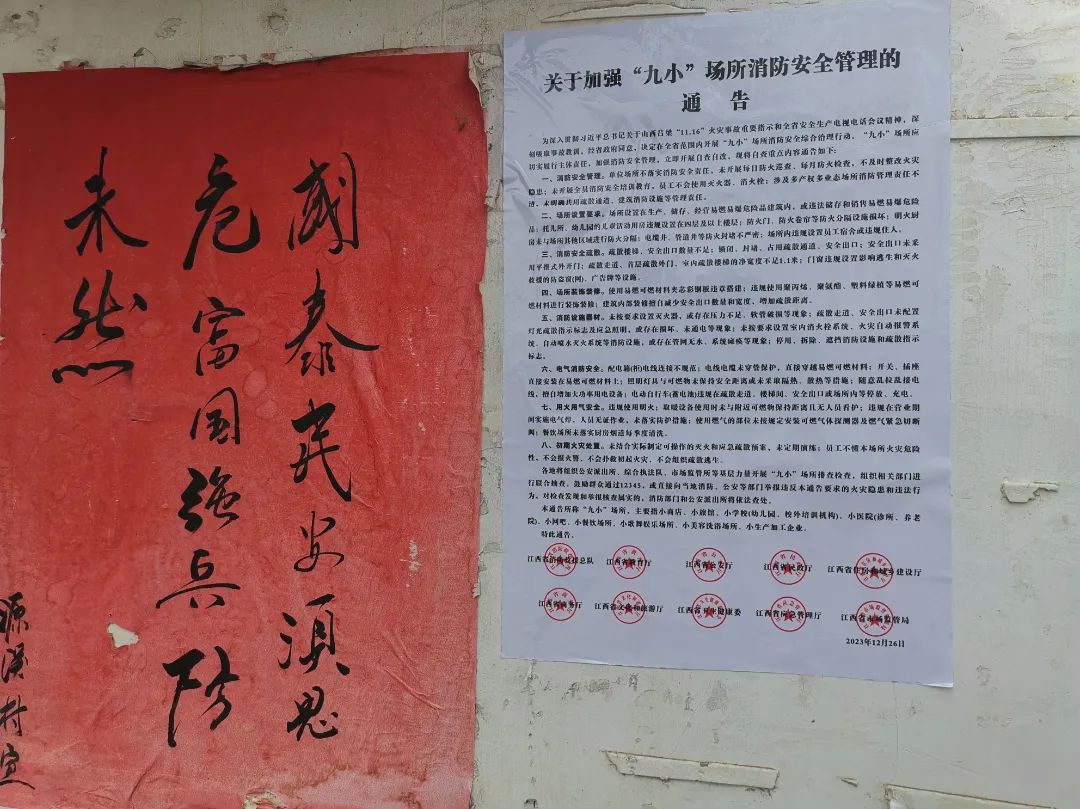 國泰民安須思
危富国强兵防
未然
源溪村宣
关于加强“九小”场所消防安全管理的
通 告
为深入贯彻习近平总书记关于山西吕梁“11.16”火灾事故重要指示和全省安全生产电视电话会议精神，深
刻吸取事故教训，经省政府同意，决定在全省范围内开展“九小”场所消防安全综合治理行动。“九小”场所应
切实履行主体责任，加强消防安全管理，立即开展自查自改。现将自查重点内容通告如下：
一、消防安全管理。单位场所不落实消防安全责任，未开展每日防火巡查、每月防火检查，不及时整改火灾
隐患；未开展全员消防安全培训教育，员工不会使用灭火器、消火栓；涉及多产权多业态场所消防管理责任不
清，未明确共用疏散通道、建筑消防设施等管理责任。
二、场所设置要求。场所设置在生产、储存、经营易燃易爆危险品建筑内，或违法储存和销售易燃易爆危险
品；托儿所、幼儿园的儿童活动用房违规设置在四层及以上楼层；防火门、防火卷帘等防火分隔设施损坏；明火厨
房未与场所其他区域进行防火分隔；电缆井、管道井等防火封堵不严密；场所内违规设置员工宿舍或违规住人。
三、消防安全疏散。疏散楼梯、安全出口数量不足；锁闭、封堵、占用疏散通道、安全出口；安全出口未采
用平推式外开门；疏散走道、首层疏散外门、室内疏散楼梯的净宽度不足1.1米；门窗违规设置影响逃生和灭火
救援的防盗窗(网)、广告牌等设施。
四、场所装饰装修。使用易燃可燃材料夹芯彩钢板违章搭建；违规使用聚丙烯、聚氨酯、塑料绿植等易燃可
燃材料进行装饰装修；建筑内部装修擅自减少安全出口数量和宽度、增加疏散距离。
五、消防设施器材。未按要求设置灭火器，或存在压力不足、软管破损等现象；疏散走道、安全出口未配置
灯光疏散指示标志及应急照明，或存在损坏、未通电等现象；未按要求设置室内消火栓系统、火灾自动报警系
统、自动喷水灭火系统等消防设施，或存在管网无水、系统瘫痪等现象；停用、拆除、遮挡消防设施和疏散指示
标志。
六、电气消防安全。配电箱(柜)电线连接不规范；电线电缆未穿管保护，直接穿越易燃可燃材料；开关、插座
直接安装在易燃可燃材料上；照明灯具与可燃物未保持安全距离或未采取隔热、散热等措施；随意乱拉乱接电
线，擅自增加大功率用电设备；电动自行车(蓄电池)违规在疏散走道、楼梯间、安全出口或场所内等停放、充电。
七、用火用气安全。违规使用明火；取暖设备使用时未与附近可燃物保持距离且无人员看护；违规在营业期
间实施电气焊、人员无证作业，未落实防护措施；使用燃气的部位未按规定安装可燃气体探测器及燃气紧急切断
阀；餐饮场所未落实厨房烟道每季度清洗。
八、初期火灾处置。未结合实际制定可操作的灭火和应急疏散预案，未定期演练；员工不懂本场所火灾危险
性，不会报火警、不会扑救初起火灾、不会组织疏散逃生。
各地将组织公安派出所、综合执法队、市场监管所等基层力量开展“九小”场所排查检查，组织相关部门进
行联合抽查。鼓励群众通过12345，或直接向当地消防、公安等部门举报违反本通告要求的火灾隐患和违法行
为，对检查发现和举报核查属实的，消防部门和公安派出所将依法查处。
本通告所称“九小”场所，主要指小商店、小旅馆、小学校(幼儿园、校外培训机构)、小医院(诊所、养老
院)、小网吧、小餐饮场所、小歌舞娱乐场所、小美容洗浴场所、小生产加工企业。
特此通告。
江西省消防救援总队 江西省教育厅 江西省公安厅 江西省民政厅 江西省住房和城乡建设厅
江西省商务厅 江西省文化和旅游厅 江西省卫生健康委 江西省应急管理厅 江西省市场监管局
2023年12月26日